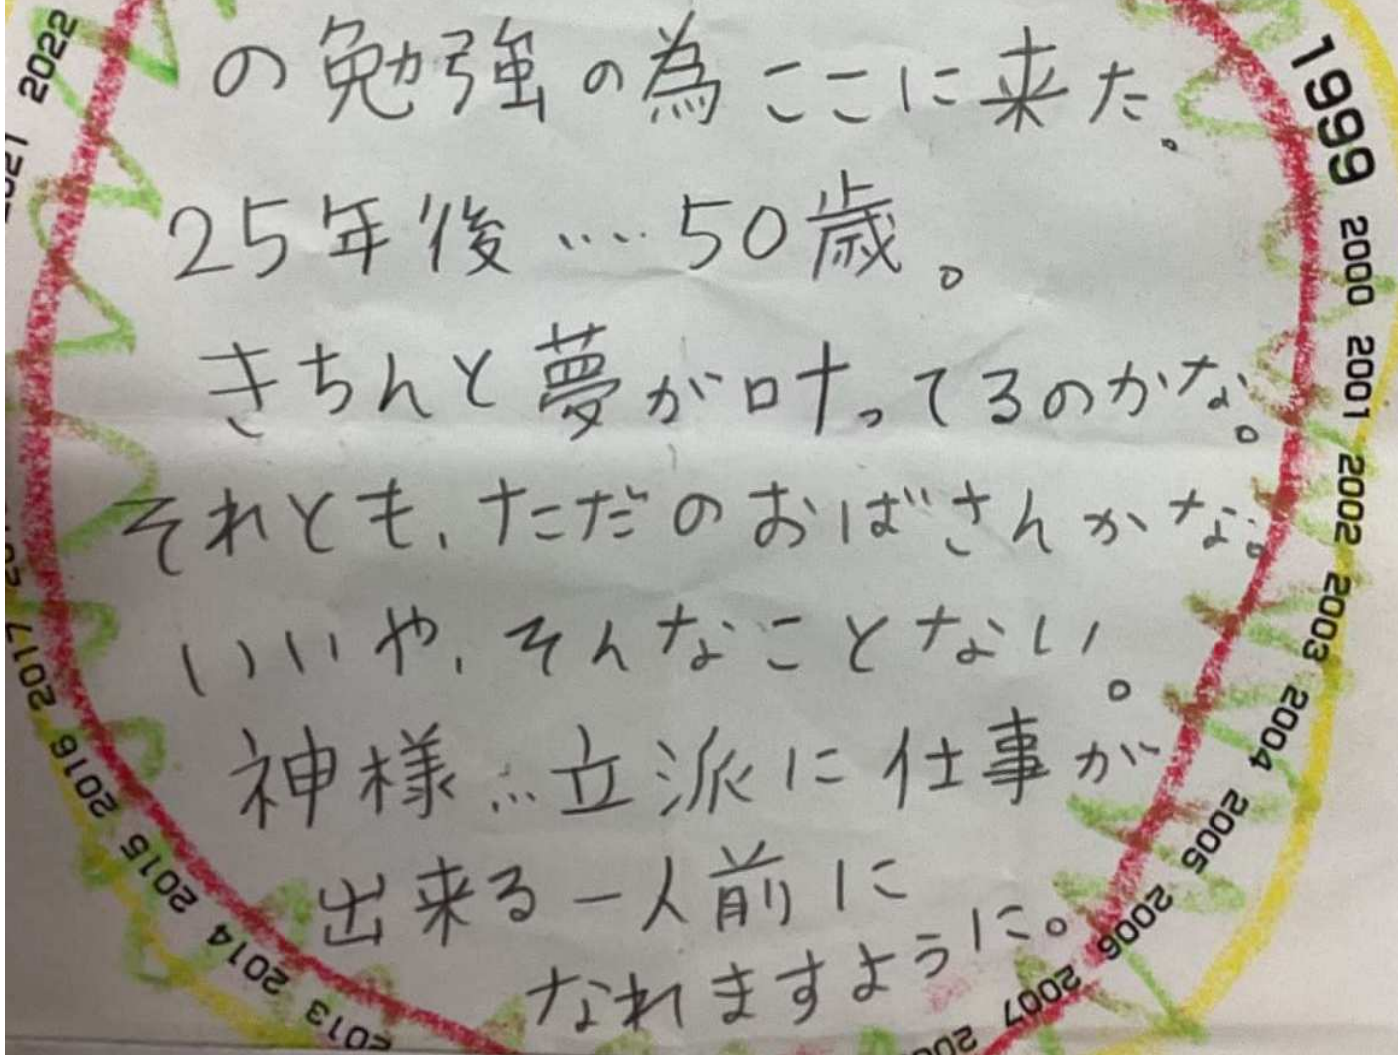 の勉強の為ここに来た。
25年後……50歳。
きちんと夢が叶ってるのかな。
それとも、ただのおばさんかな。
いいや、そんなことない。
神様…立派に仕事が
出来る一人前に
なれますように。
1999
2000
2001
2002
2003
2004
2005
2006
2007
2013
2014
2015
2016
2017
2022